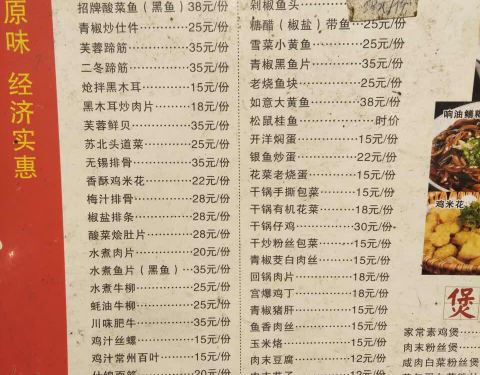 原味 经济实惠
招牌酸菜鱼（黑鱼）38元/份
青椒炒仕件……25元/份
芙蓉蹄筋……35元/份
二冬蹄筋……35元/份
炝拌黑木耳……15元/份
黑木耳炒肉片……18元/份
芙蓉鲜贝……35元/份
苏北头道菜……25元/份
无锡排骨……35元/份
香酥鸡米花……22元/份
梅汁排骨……28元/份
椒盐排条……28元/份
酸菜烩肚片……28元/份
水煮肉片……20元/份
水煮鱼片（黑鱼）…35元/份
水煮牛柳……25元/份
蚝油牛柳……25元/份
川味肥牛……35元/份
鸡汁丝螺……15元/份
鸡汁常州百叶……15元/份
剁椒鱼头
糖醋（椒盐）带鱼…25元/份
雪菜小黄鱼……25元/份
青椒黑鱼片……35元/份
老烧鱼块……25元/份
如意大黄鱼……38元/份
松鼠桂鱼……时价
开洋焖蛋……15元/份
银鱼炒蛋……22元/份
花菜老烧蛋……15元/份
干锅手撕包菜……15元/份
干锅有机花菜……18元/份
干锅仔鸡……30元/份
干炒粉丝包菜……15元/份
青椒茭白肉丝……15元/份
回锅肉片……18元/份
宫爆鸡丁……18元/份
青椒猪肝……18元/份
鱼香肉丝……15元/份
玉米烙……15元/份
肉末豆腐……12元/份
响油鳝糊
鸡米花
煲
家常素鸡煲
肉末粉丝煲
咸肉白菜粉丝